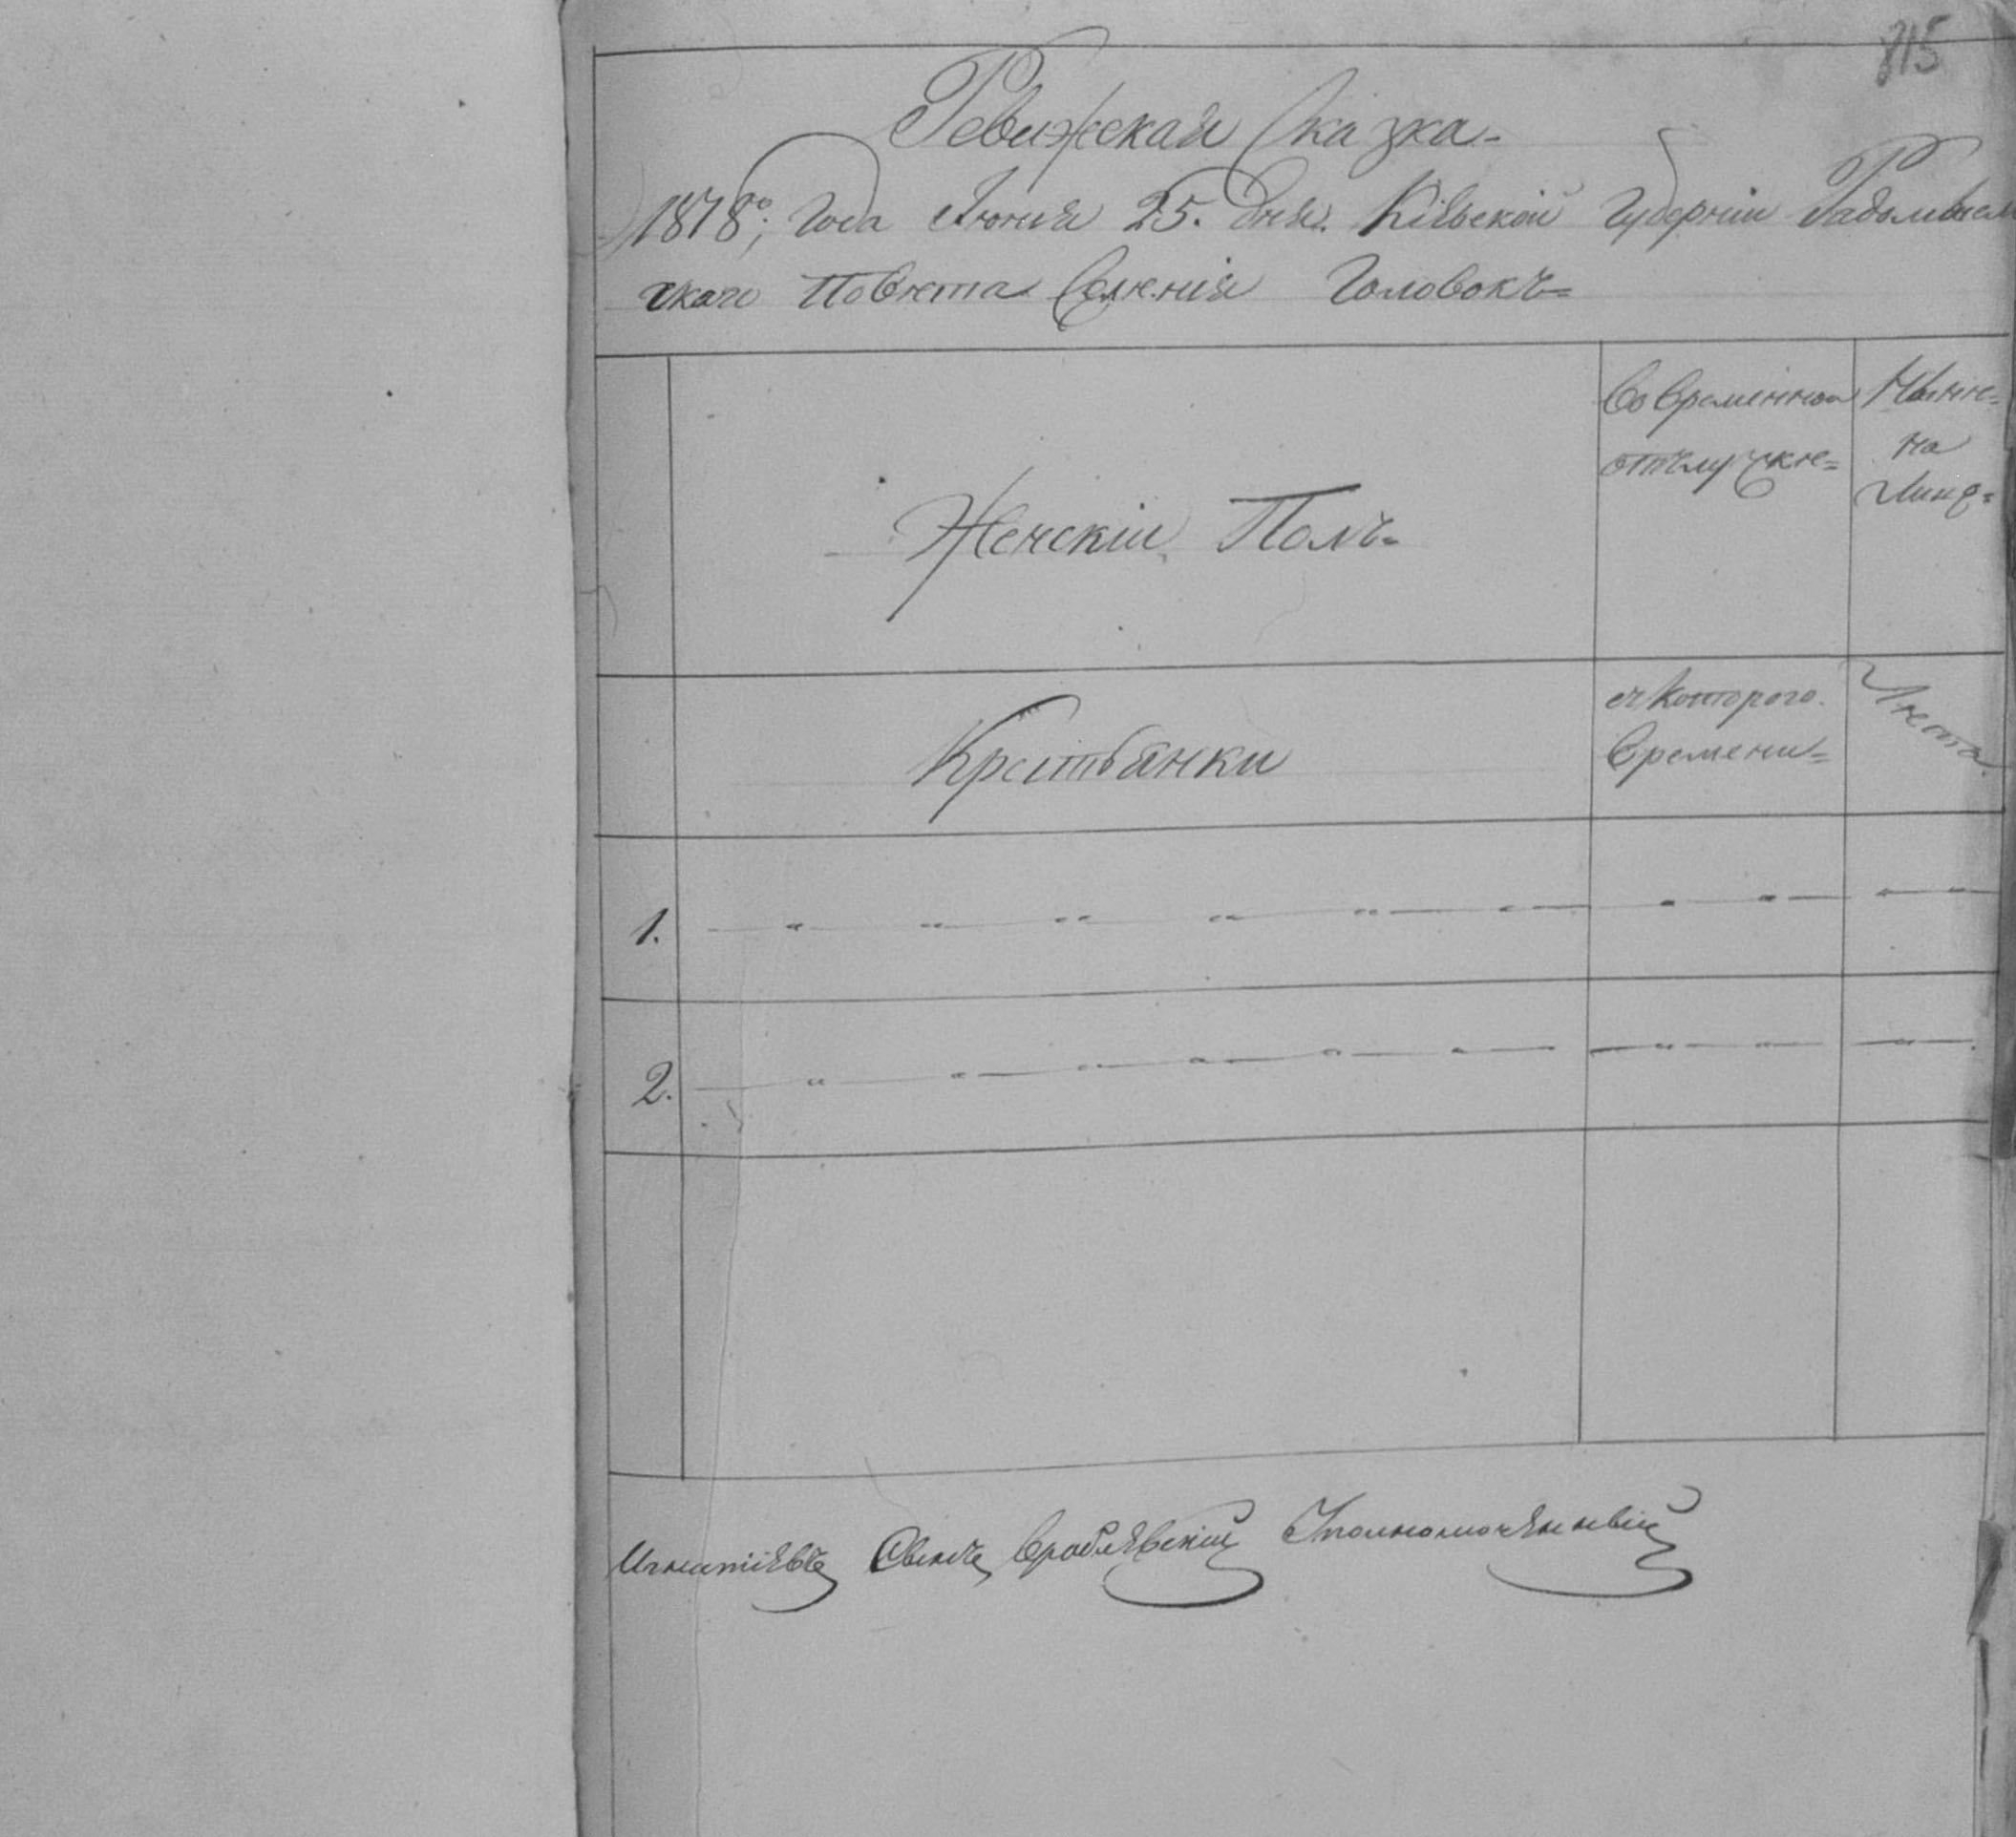 815
Ревижская Сказка.
1818го; года Июния 25. дня. Кіевской Губерніи Радомысл
скаго Повѣта Селенія Головокъ=
Женскій Полъ=
Во Временной
отълучкѣ=
Нынѣ=
на
Лицо=
Крестьянки
съ Которого
Времени=
Лѣта.
1.
2.
Игнатіевъ Уполномоченный